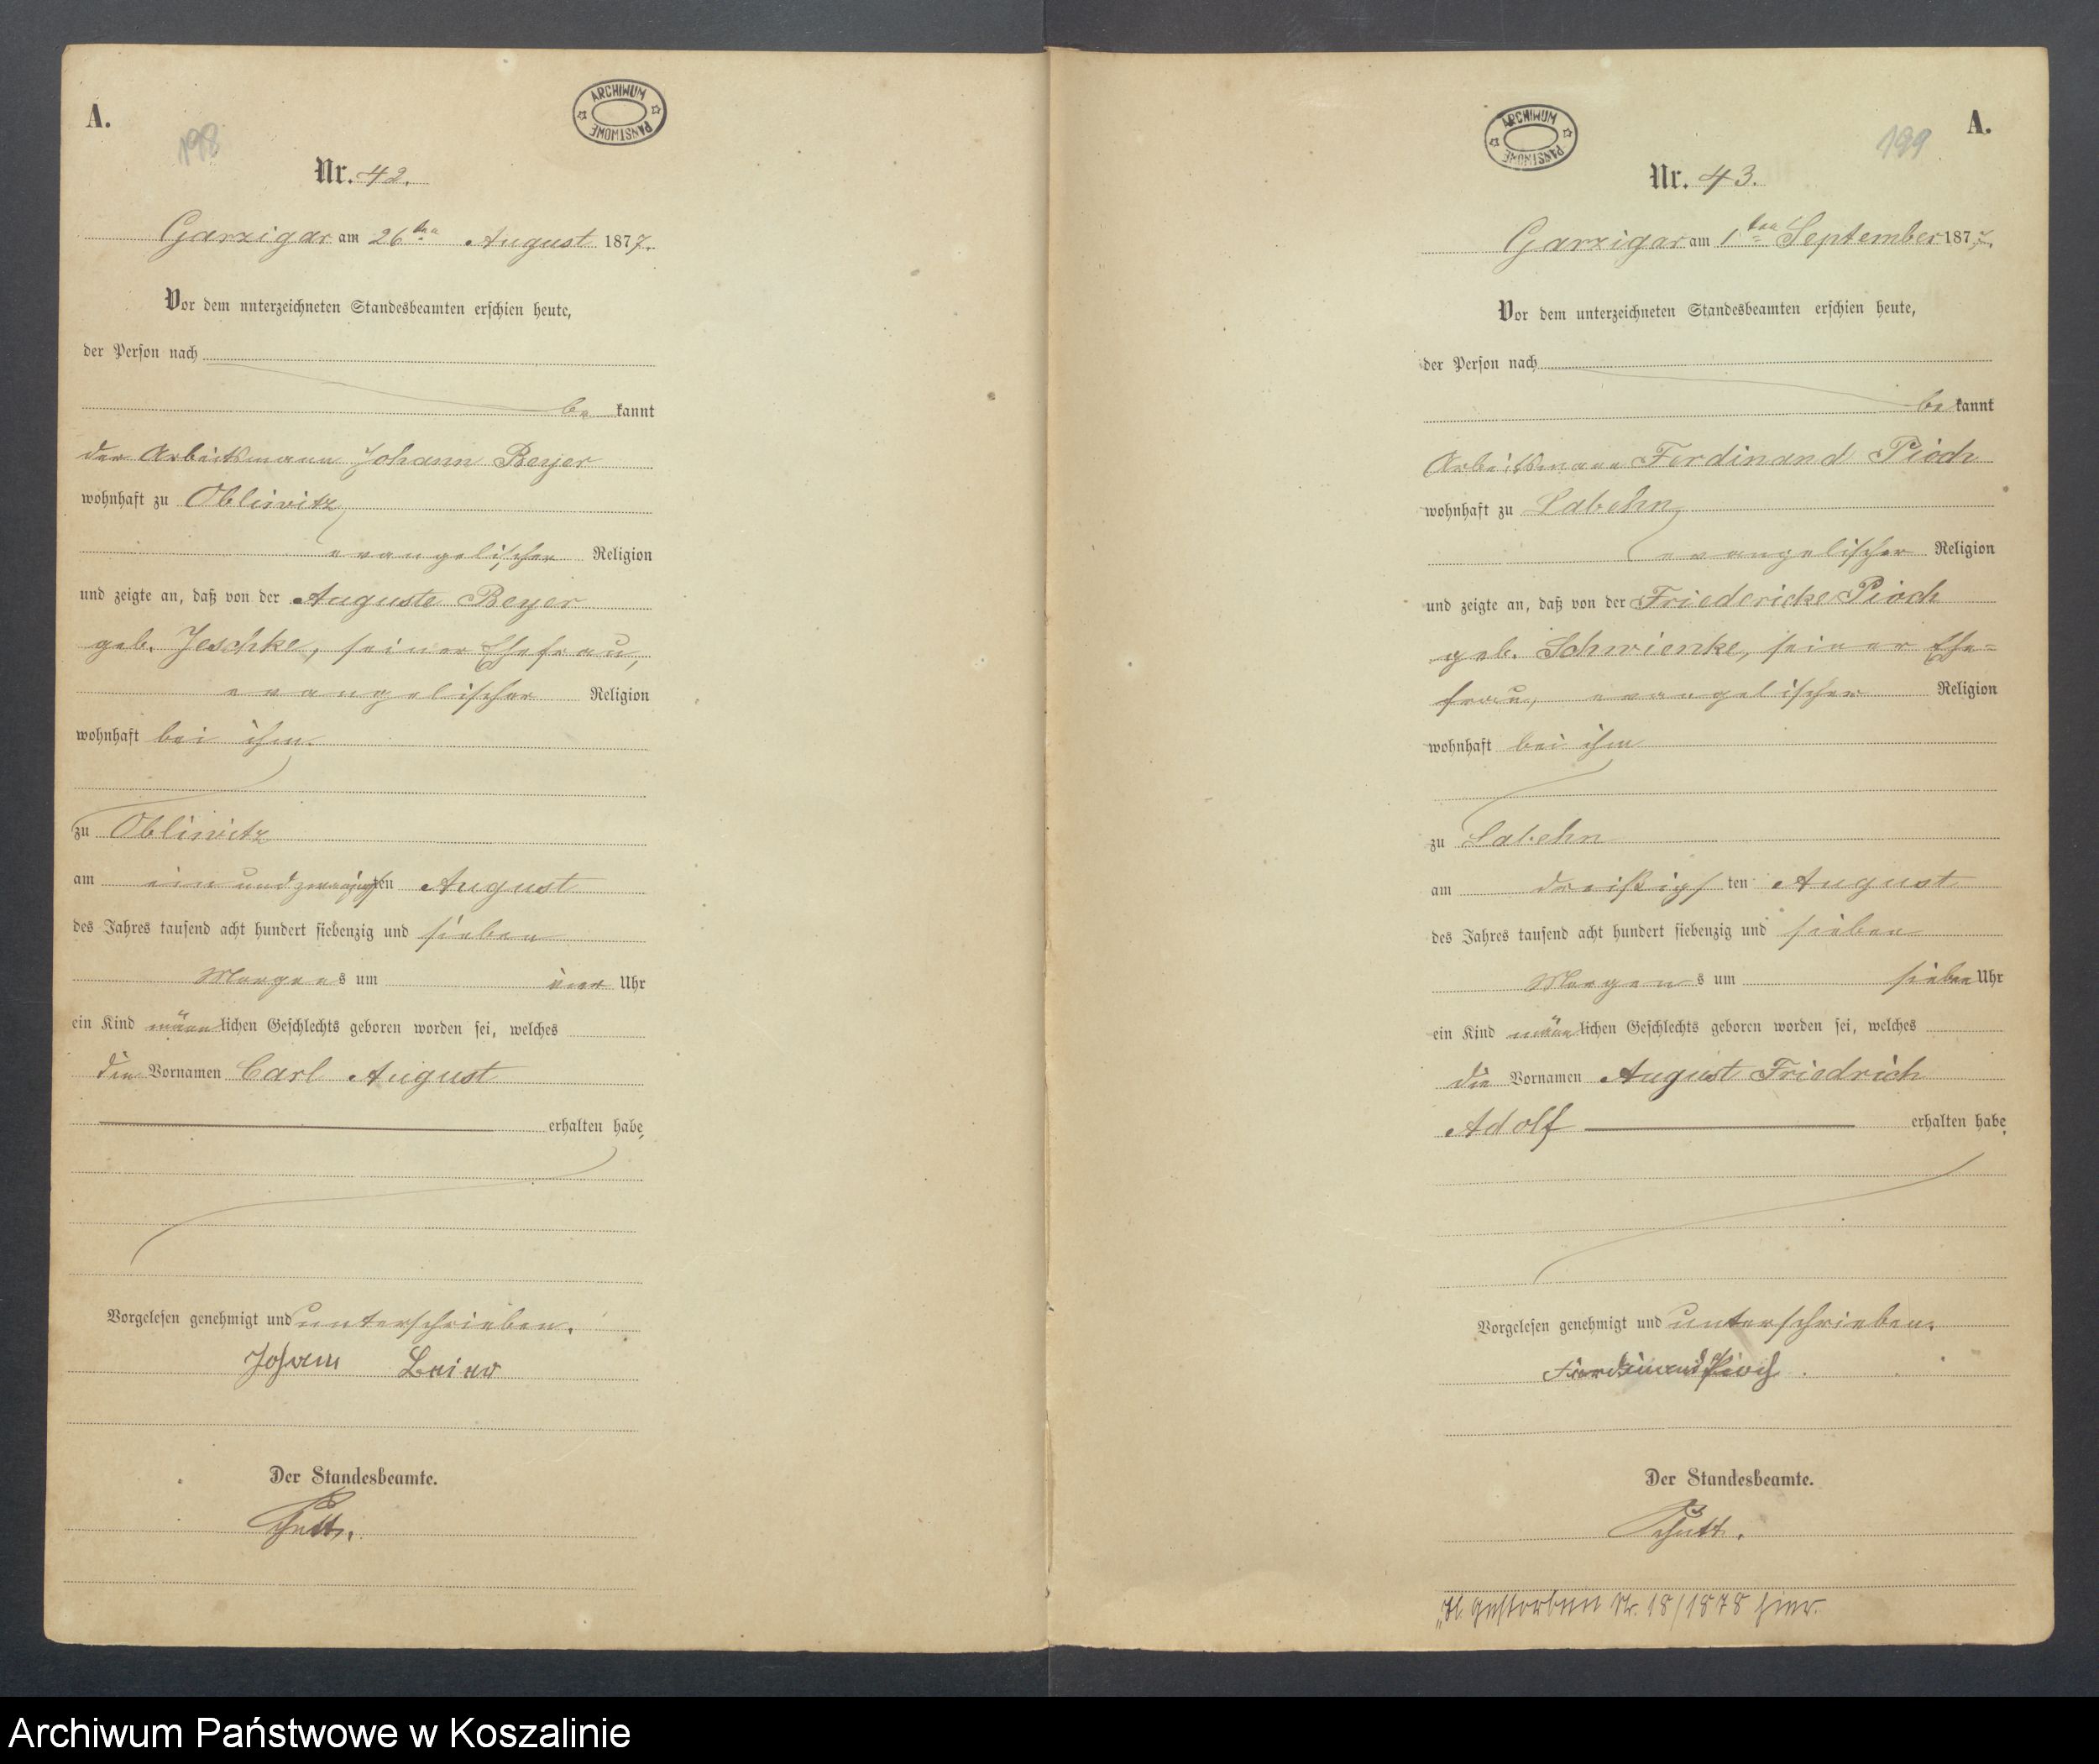 A.
198
ARCHIWUM PAŃSTWOWE
Nr. 42.
Garzigar am 26ten August 1877.
Vor dem unterzeichneten Standesbeamten erschien heute,
der Person nach
be kannt
der Arbeitsmann Johann Beyer
wohnhaft zu Obliwitz
evangelischer Religion
und zeigte an, daß von der Auguste Beyer
geb. Jeschke, seiner Ehefrau,
evangelischer Religion
wohnhaft bei ihm
zu Obliwitz
am ein und zwanzigsten August
des Jahres tausend acht hundert siebenzig und sieben
Morgens um vier Uhr
ein Kind männlichen Geschlechts geboren worden sei, welches
die Vornamen Carl August
erhalten habe,
Vorgelesen genehmigt und unterschrieben.
Johann Beier
Der Standesbeamte.
A.
199
ARCHIWUM PAŃSTWOWE
Nr. 43.
Garzigar am 1ten September 1877.
Vor dem unterzeichneten Standesbeamten erschien heute,
der Person nach
be kannt
Arbeitsmann Ferdinand Pioch
wohnhaft zu Labehn,
evangelischer Religion
und zeigte an, daß von der Friedericke Pioch
geb. Schwienke, seiner Ehe=
frau, evangelischer Religion
wohnhaft bei ihm
zu Labehn
am dreißigsten August
des Jahres tausend acht hundert siebenzig und sieben
Morgens um sieben Uhr
ein Kind männlichen Geschlechts geboren worden sei, welches
die Vornamen August Friedrich
Adolf erhalten habe.
Vorgelesen genehmigt und unterschrieben.
Ferdinand Pioch
Der Standesbeamte.
gestorben Nr. 18/1878 hier.
Archiwum Państwowe w Koszalinie